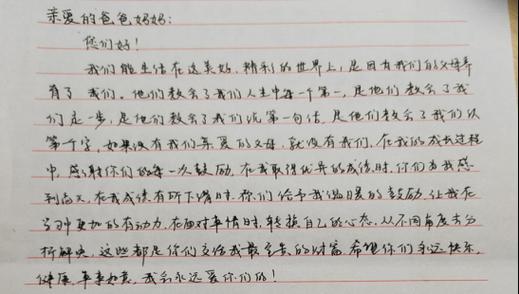 亲爱的爸爸妈妈:
您们好!
我们能生活在这美好、精彩的世界上,是因有我们的父母养
育了我们。他们教会了我们人生中每一个第一,是他们教会了我
们走一步,是他们教会了我们说第一句话,是他们教会了我们认
第个字,如果没有我们亲爱的父母,就没有我们。在我的成长过程
中,感谢你们的每一次鼓励。在我取得优异的成绩时,你们为我感
到高兴,在我成绩有所下滑时,你们给予我温暖的鼓励,让我在
学习中更加的有动力,在面对事情时,转换自己的心态,从不同角度去分
析解决,这些都是你们交给我最宝贵的财富。希望你们永远快乐,
健康,事事如意,我会永远爱你们的!